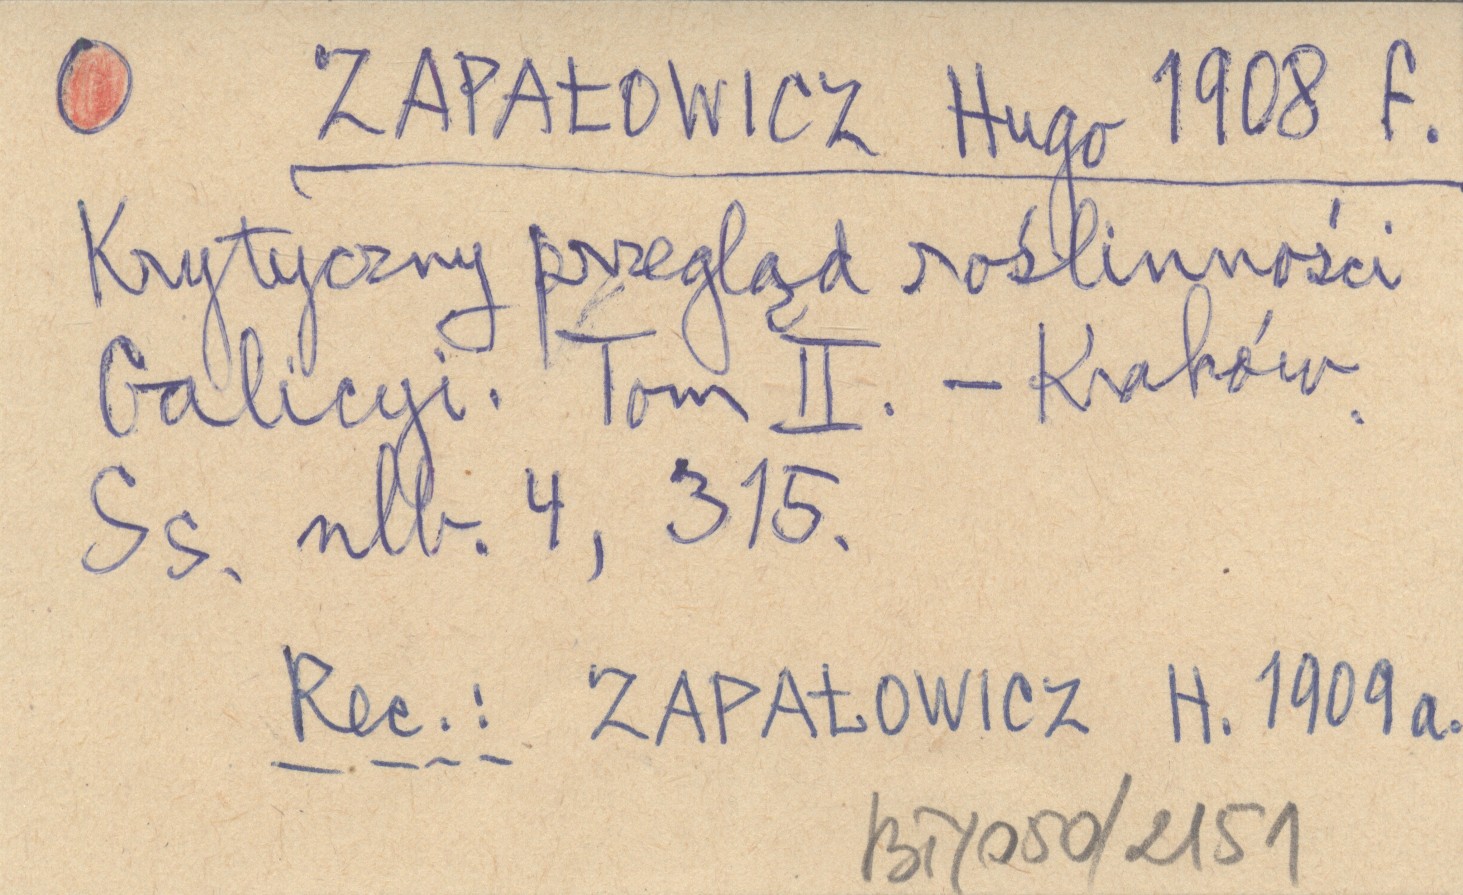 ZAPAŁOWICZ Hugo 1908 f.
Krytyczny przegląd roślinności
Galicyi. Tom II. – Kraków.
Ss. nlb. 4, 315.
Rec.: ZAPAŁOWICZ H. 1909a.